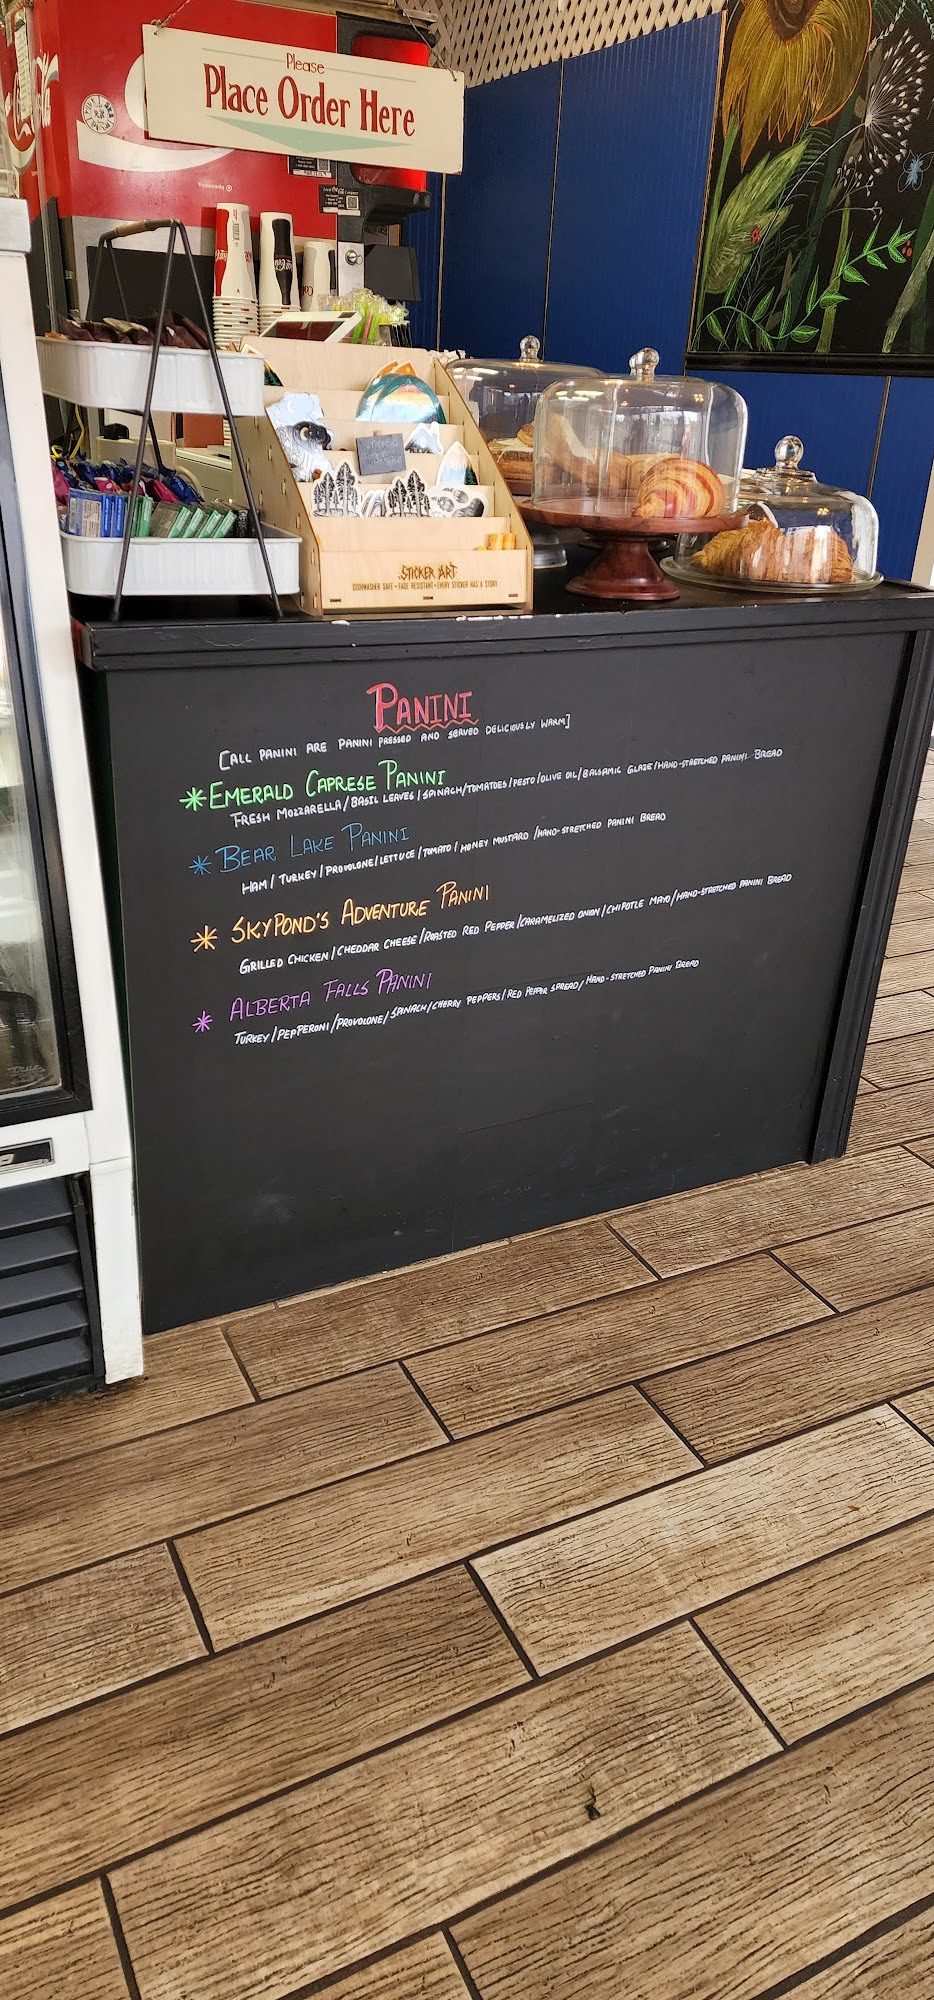 Please
Place Order Here
Trademark ®
Coca-Cola
STICKER ART
DISHWASHER SAFE • FADE RESISTANT • EVERY STICKER HAS A STORY
PANINI
[ALL PANINI ARE PANINI PRESSED AND SERVED DELICIOUSLY WARM]
*EMERALD CAPRESE PANINI
FRESH MOZZARELLA/BASIL LEAVES/SPINACH/TOMATOES/PESTO/OLIVE OIL/BALSAMIC GLAZE/HAND-STRETCHED PANINI BREAD
*BEAR LAKE PANINI
HAM/TURKEY/PROVOLONE/LETTUCE/TOMATO/HONEY MUSTARD/HAND-STRETCHED PANINI BREAD
*SKYPOND'S ADVENTURE PANINI
GRILLED CHICKEN/CHEDDAR CHEESE/ROASTED RED PEPPER/CARAMELIZED ONION/CHIPOTLE MAYO/HAND-STRETCHED PANINI BREAD
*ALBERTA FALLS PANINI
TURKEY/PEPPERONI/PROVOLONE/SPINACH/CHERRY PEPPERS/RED PEPPER SPREAD/HAND-STRETCHED PANINI BREAD